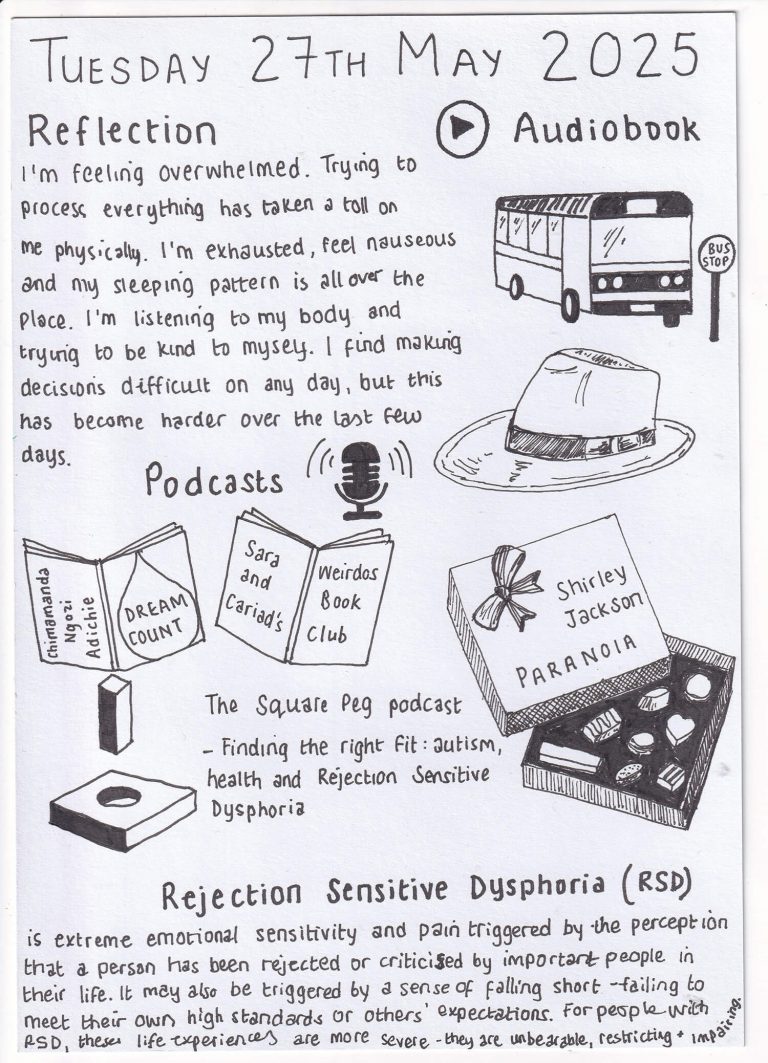 TUESDAY 27TH MAY 2025
Reflection
I'm feeling overwhelmed. Trying to
process everything has taken a toll on
me physically. I'm exhausted, feel nauseous
and my sleeping pattern is all over the
place. I'm listening to my body and
trying to be kind to myself. I find making
decisions difficult on any day, but this
has become harder over the last few
days.
Audiobook
BUS
STOP
Shirley
Jackson
PARANOIA
Podcasts
Chimamanda
Ngozi
Adichie
DREAM
COUNT
Sara
and
Cariad's
Weirdos
Book
Club
The Square Peg podcast
- Finding the right fit: autism,
health and Rejection Sensitive
Dysphoria
Rejection Sensitive Dysphoria (RSD)
is extreme emotional sensitivity and pain triggered by the perception
that a person has been rejected or criticised by important people in
their life. It may also be triggered by a sense of falling short - failing to
meet their own high standards or others' expectations. For people with
RSD, these life experiences are more severe - they are unbearable, restricting + impairing.